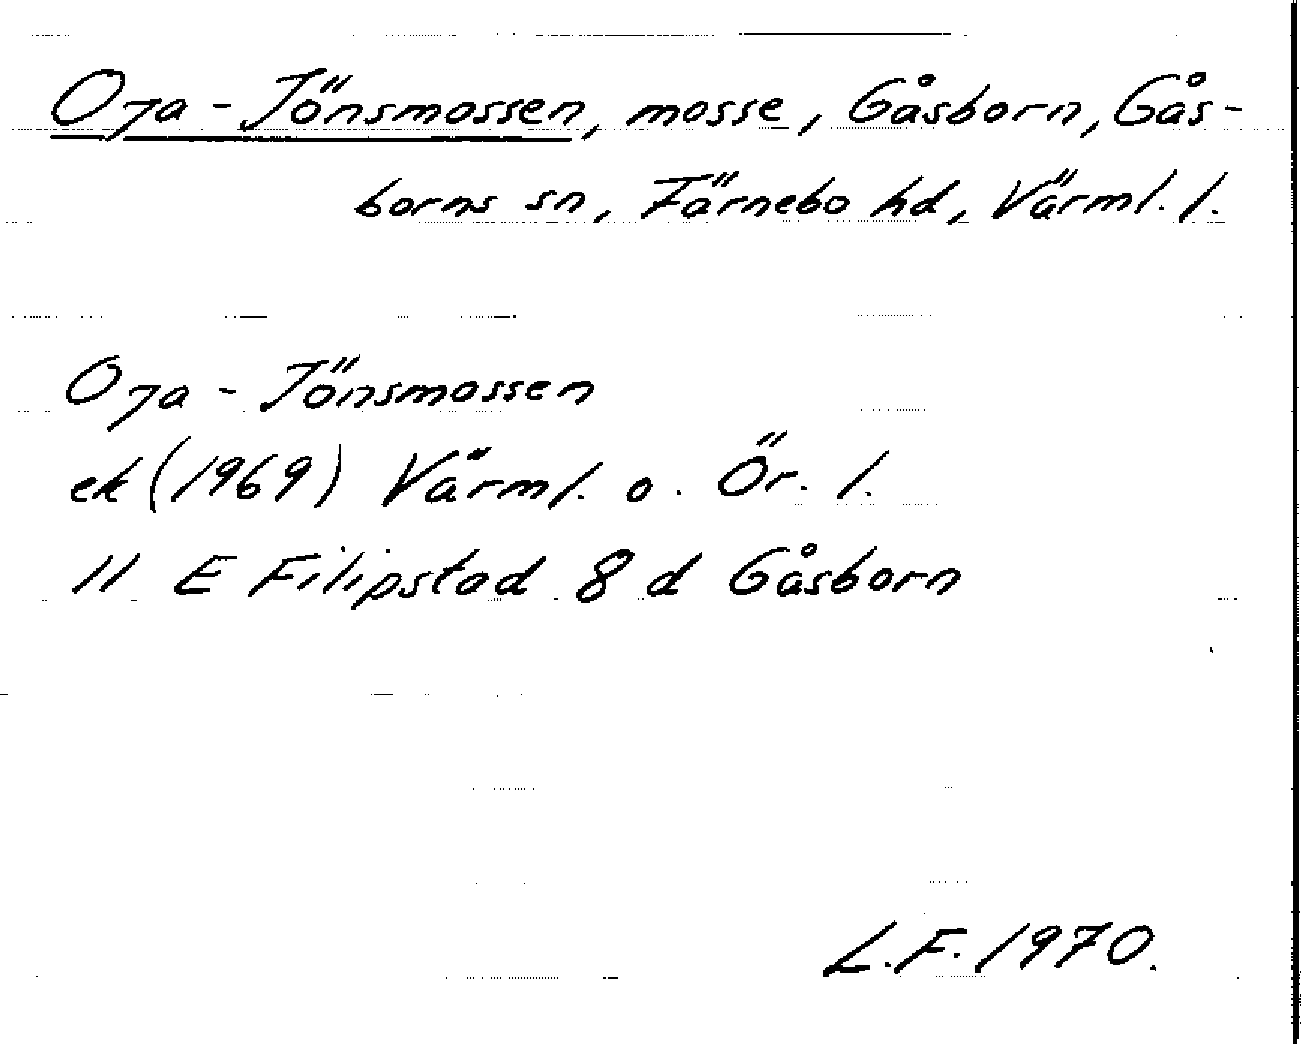 Oja-Jönsmossen, mosse, Gåsborn, Gås-
borns sn, Färnebo hd, Värml. l.
Oja-Jönsmossen
ek (1969) Värml. o. Ör. l.
11 E Filipstad 8 d Gåsborn
L.F. 1970.